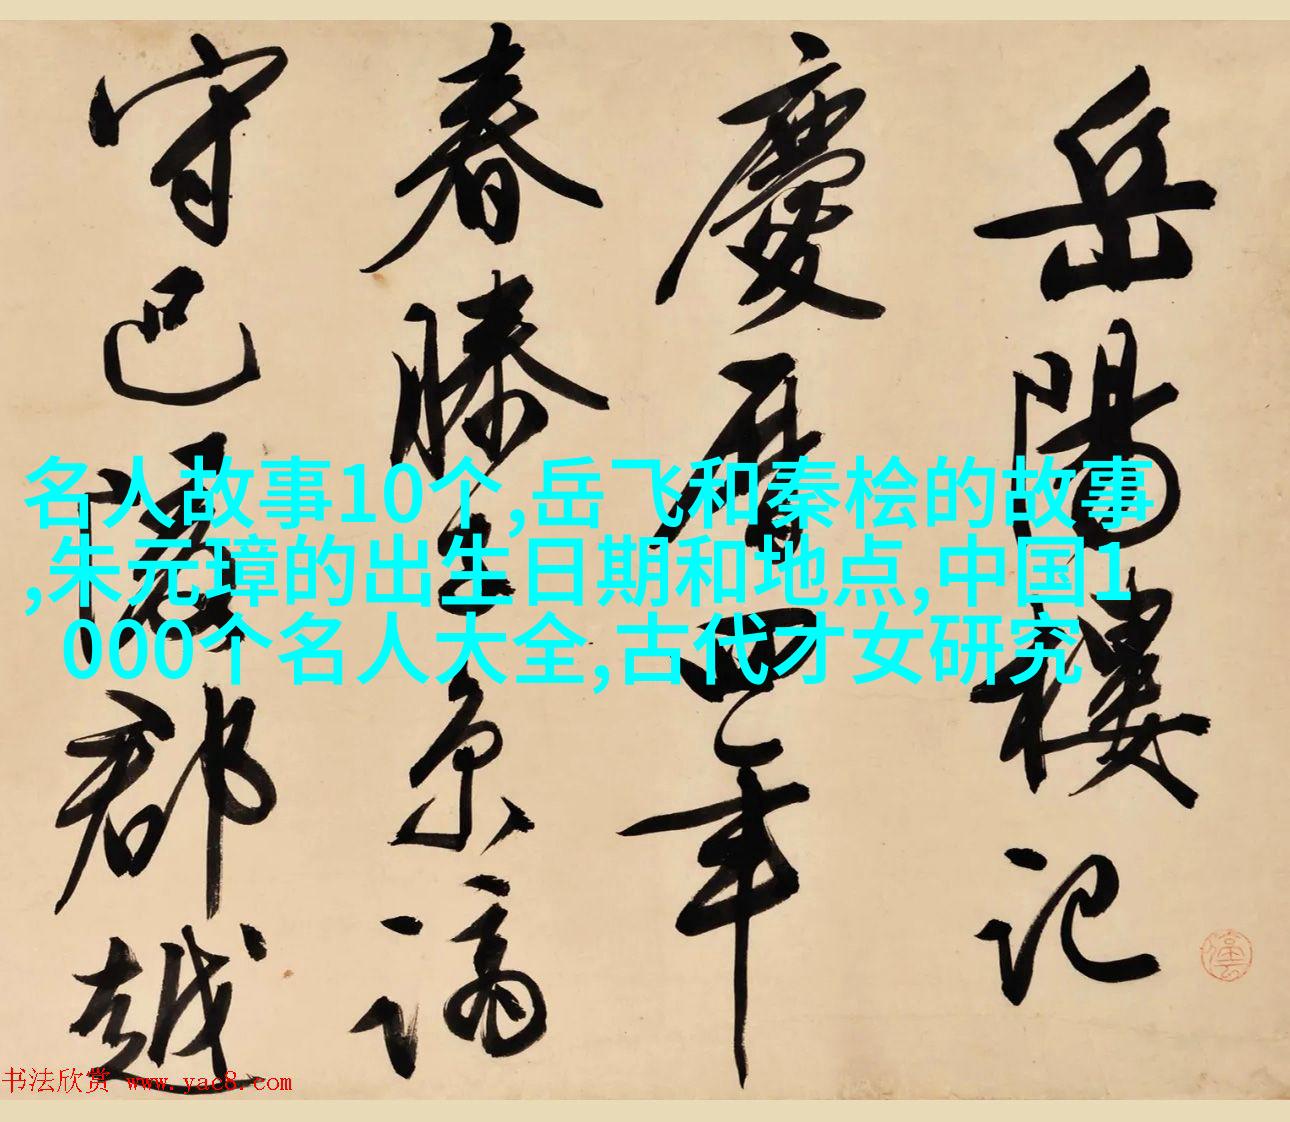 岳陽樓記
慶曆四年
春滕子京謫
守巴陵郡越
名人故事10个,岳飞和秦桧的故事
,朱元璋的出生日期和地点,中国1
000个名人大全,古代才女研究
书法欣赏 www.yac8.com